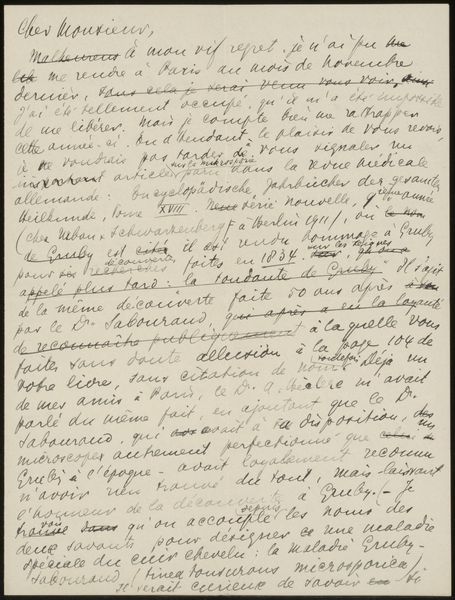 Cher Monsieur,
Malheureus à mon vif regret, je n'ai pu
me rendre à Paris au mois de novembre
dernier, sans cela je serai venu vous voir,
J'ai été tellement occupé, qu'il m'a été impossible
de me libérer. Mais je compte bien me rattraper
cette année-ci. En attendant le plaisir de vous revoir,
je ne voudrais pas tarder à vous signaler un
important article sur la microsporie paru dans la revue médicale
allemande: Encyclopädische Jahrbücher der gesamten
Heilkunde, tome XVIII. série nouvelle, année
(chez Urban & Schwarzenberg à Berlin 1911), où
de Gruby est cité il est rendu hommage à Gruby
pour ses recherches découvertes faites en 1834. sur les teignes
appelé plus tard: la tondante de Gruby". Il s'agit
de la même découverte faite 50 ans après
par le Dr Sabouraud, qui après a eu la loyauté
de reconnaitre publiquement à laquelle vous
faites sans doute allusion à la page 104 de
votre livre, sans citation de noms toutefois. Déjà un
de mes amis à Paris, le Dr A. Béclère m'avait
parlé du même fait, en ajoutant que le Dr
Sabouraud, qui avait à sa disposition,
microscope autrement perfectionné que
Gruby à l'époque - avait loyalement reconnu
n'avoir rien trouvé du tout, mais laissant
l'honneur de la découverte à Gruby. (- Je
trouve sans qu'on accouple depuis les noms des
deux savants pour désigner ce une maladie
spéciale du cuir chevelu: la maladie Gruby-
Sabouraud (tinea tonsurans microsporica)
se serait curieux de savoir si